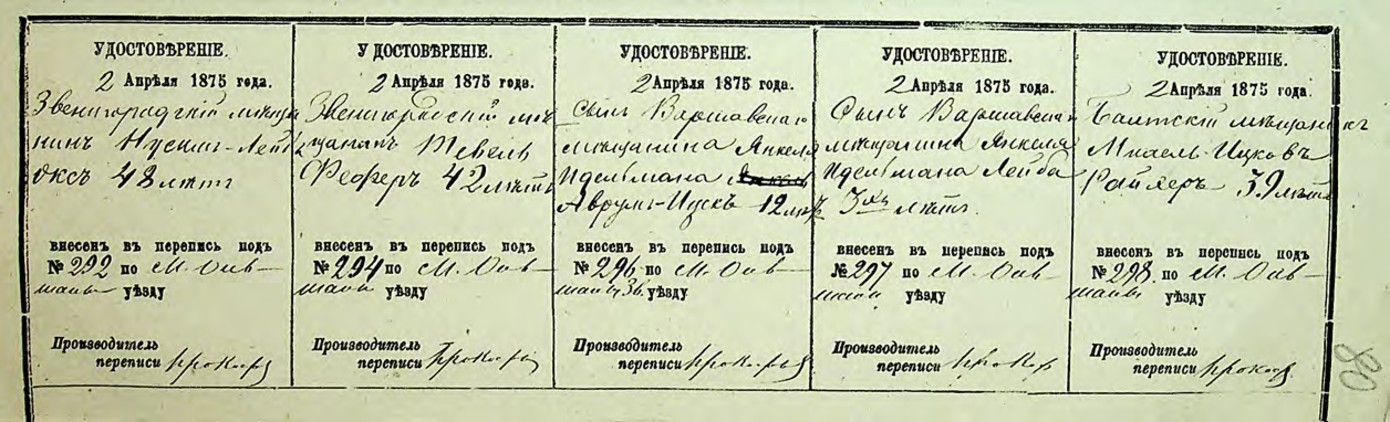 УДОСТОВѢРЕНІЕ.
2 Апрѣля 1875 года.
Звенигородскій мѣща
нинъ Нусимъ-Лейб
48 лѣтъ
внесенъ въ перепись подъ
№ 292 по М. Оль
шаны уѣзду
Производитель
переписи
УДОСТОВѢРЕНІЕ.
2 Апрѣля 1875 года.
Звенигородскій мѣ
щанинъ Тевель
Феферъ 42 лѣтъ
внесенъ въ перепись подъ
№ 294 по М. Оль
шаны уѣзду
Производитель
переписи
УДОСТОВѢРЕНІЕ.
2 Апрѣля 1875 года.
Сынъ Варшавскаго
мѣщанина Янкеля
Идельмана
Аврумъ-Ицекъ 12 лѣтъ
внесенъ въ перепись подъ
№ 296 по М. Оль
шаны Зв. уѣзду
Производитель
переписи
УДОСТОВѢРЕНІЕ.
2 Апрѣля 1875 года.
Сынъ Варшавскаго
мѣщанина Янкеля
Идельмана Лейба
3хъ лѣтъ.
внесенъ въ перепись подъ
№ 297 по М. Оль
шаны уѣзду
Производитель
переписи
УДОСТОВѢРЕНІЕ.
2 Апрѣля 1875 года.
Балтскій мѣщанинъ
Ицковъ
39 лѣтъ
внесенъ въ перепись подъ
№ 298. по М. Оль
шаны уѣзду
Производитель
переписи
80